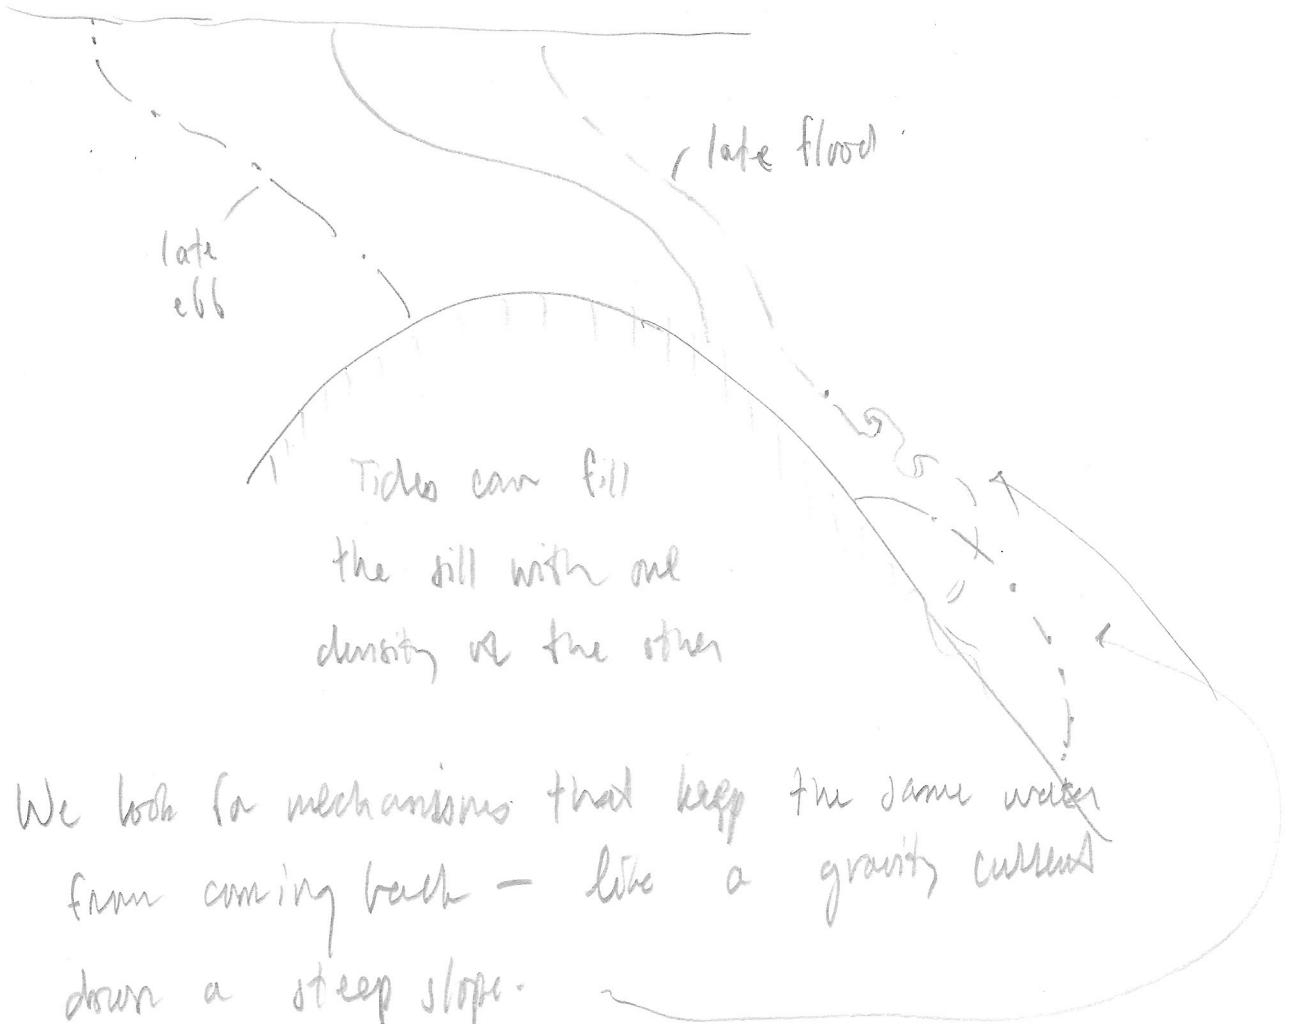 late flood
late
ebb
Tides can fill
the sill with one
density or the other
We look for mechanisms that keep the same water
from coming back – like a gravity current
down a steep slope.